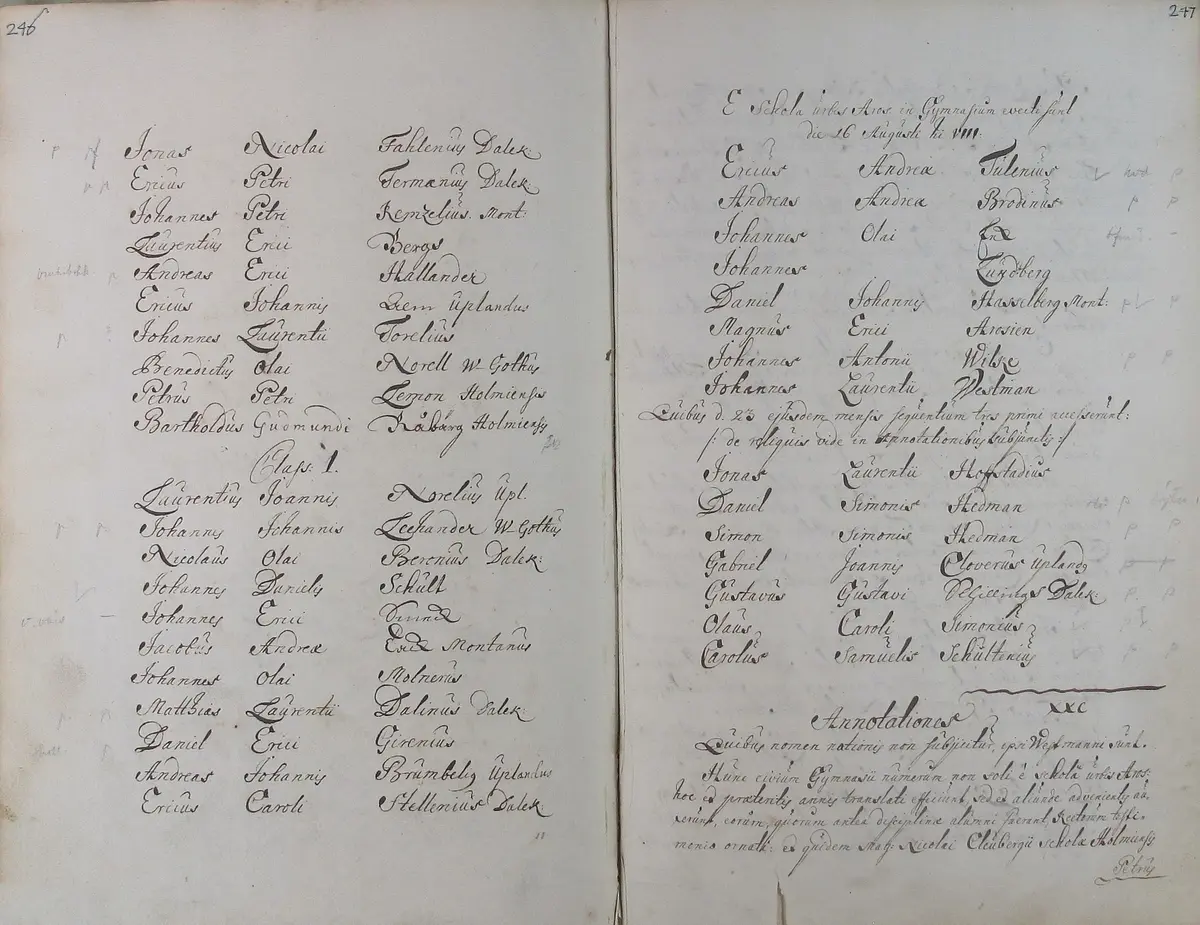 246
Jonas Nicolai Fahlenius Dalek:
Ericus Petri Termænius Dalek:
Johannes Petri Remzelius. Mont:
Laurentius Erici Bergs
Andreas Erici Hallander
Ericus Johannis Uplandus
Johannes Laurentii Torelius
Benedictus Olai Norell W Gothus
Petrus Petri Lemon Holmiensis
Bartholdus Gudmundi Råbärg Holmiensis
Class: I.
Laurentius Joannis Norelius Upl.
Johannis Johannis W Gothus
Nicolaus Olai Beronius Dalek:
Johannes Danielis Schult
Johannes Erici
Jacobus Andreæ Montanus
Johannes Olai Molnerus
Matthias Laurentii Dalinus Dalek:
Daniel Erici Girenius
Andreas Johannis Uplandus
Ericus Caroli Stellenius Dalek:
247
E Schola urbis Aros. in Gymnasium vecti sunt
die 26 Augusti h: VIII.
Ericus Andreæ Tilenius
Andreas Andreæ Brodinus
Johannes Olai
Johannes Lundberg
Daniel Johannis Hasselberg Mont:
Magnus Erici Arosien
Johannes Antonii Wilske
Johannes Laurentii Westman
Quibus d. 23 ejusdem mensis sequentium tres primi accesserunt:
/: de reliquis vide in Annotationibus subjunctis :/
Jonas Laurentii Hoffstadius
Daniel Simonis Hedman
Simon Simonis Hedman
Gabriel Joannis Cloverus Upland9
Gustavus Gustavi Dalek:
Olaus Caroli Simonius
Carolus Samuelis Schultenius
XXC
Annotationes
Quibus nomen nationis non subjicitur, ipsi Westmanni sunt.
Hunc civium Gymnasii numerum non soli è schola urbis Aros.
hoc et præteritis annis translati efficiunt, sed et aliunde advenientes au-
xerunt, eorum, quorum antea disciplinæ alumni fuerant, Rectorum testi-
monio ornati: et quidem Mag: Nicolai Cleubergii scholæ Holmiensis
Petrus